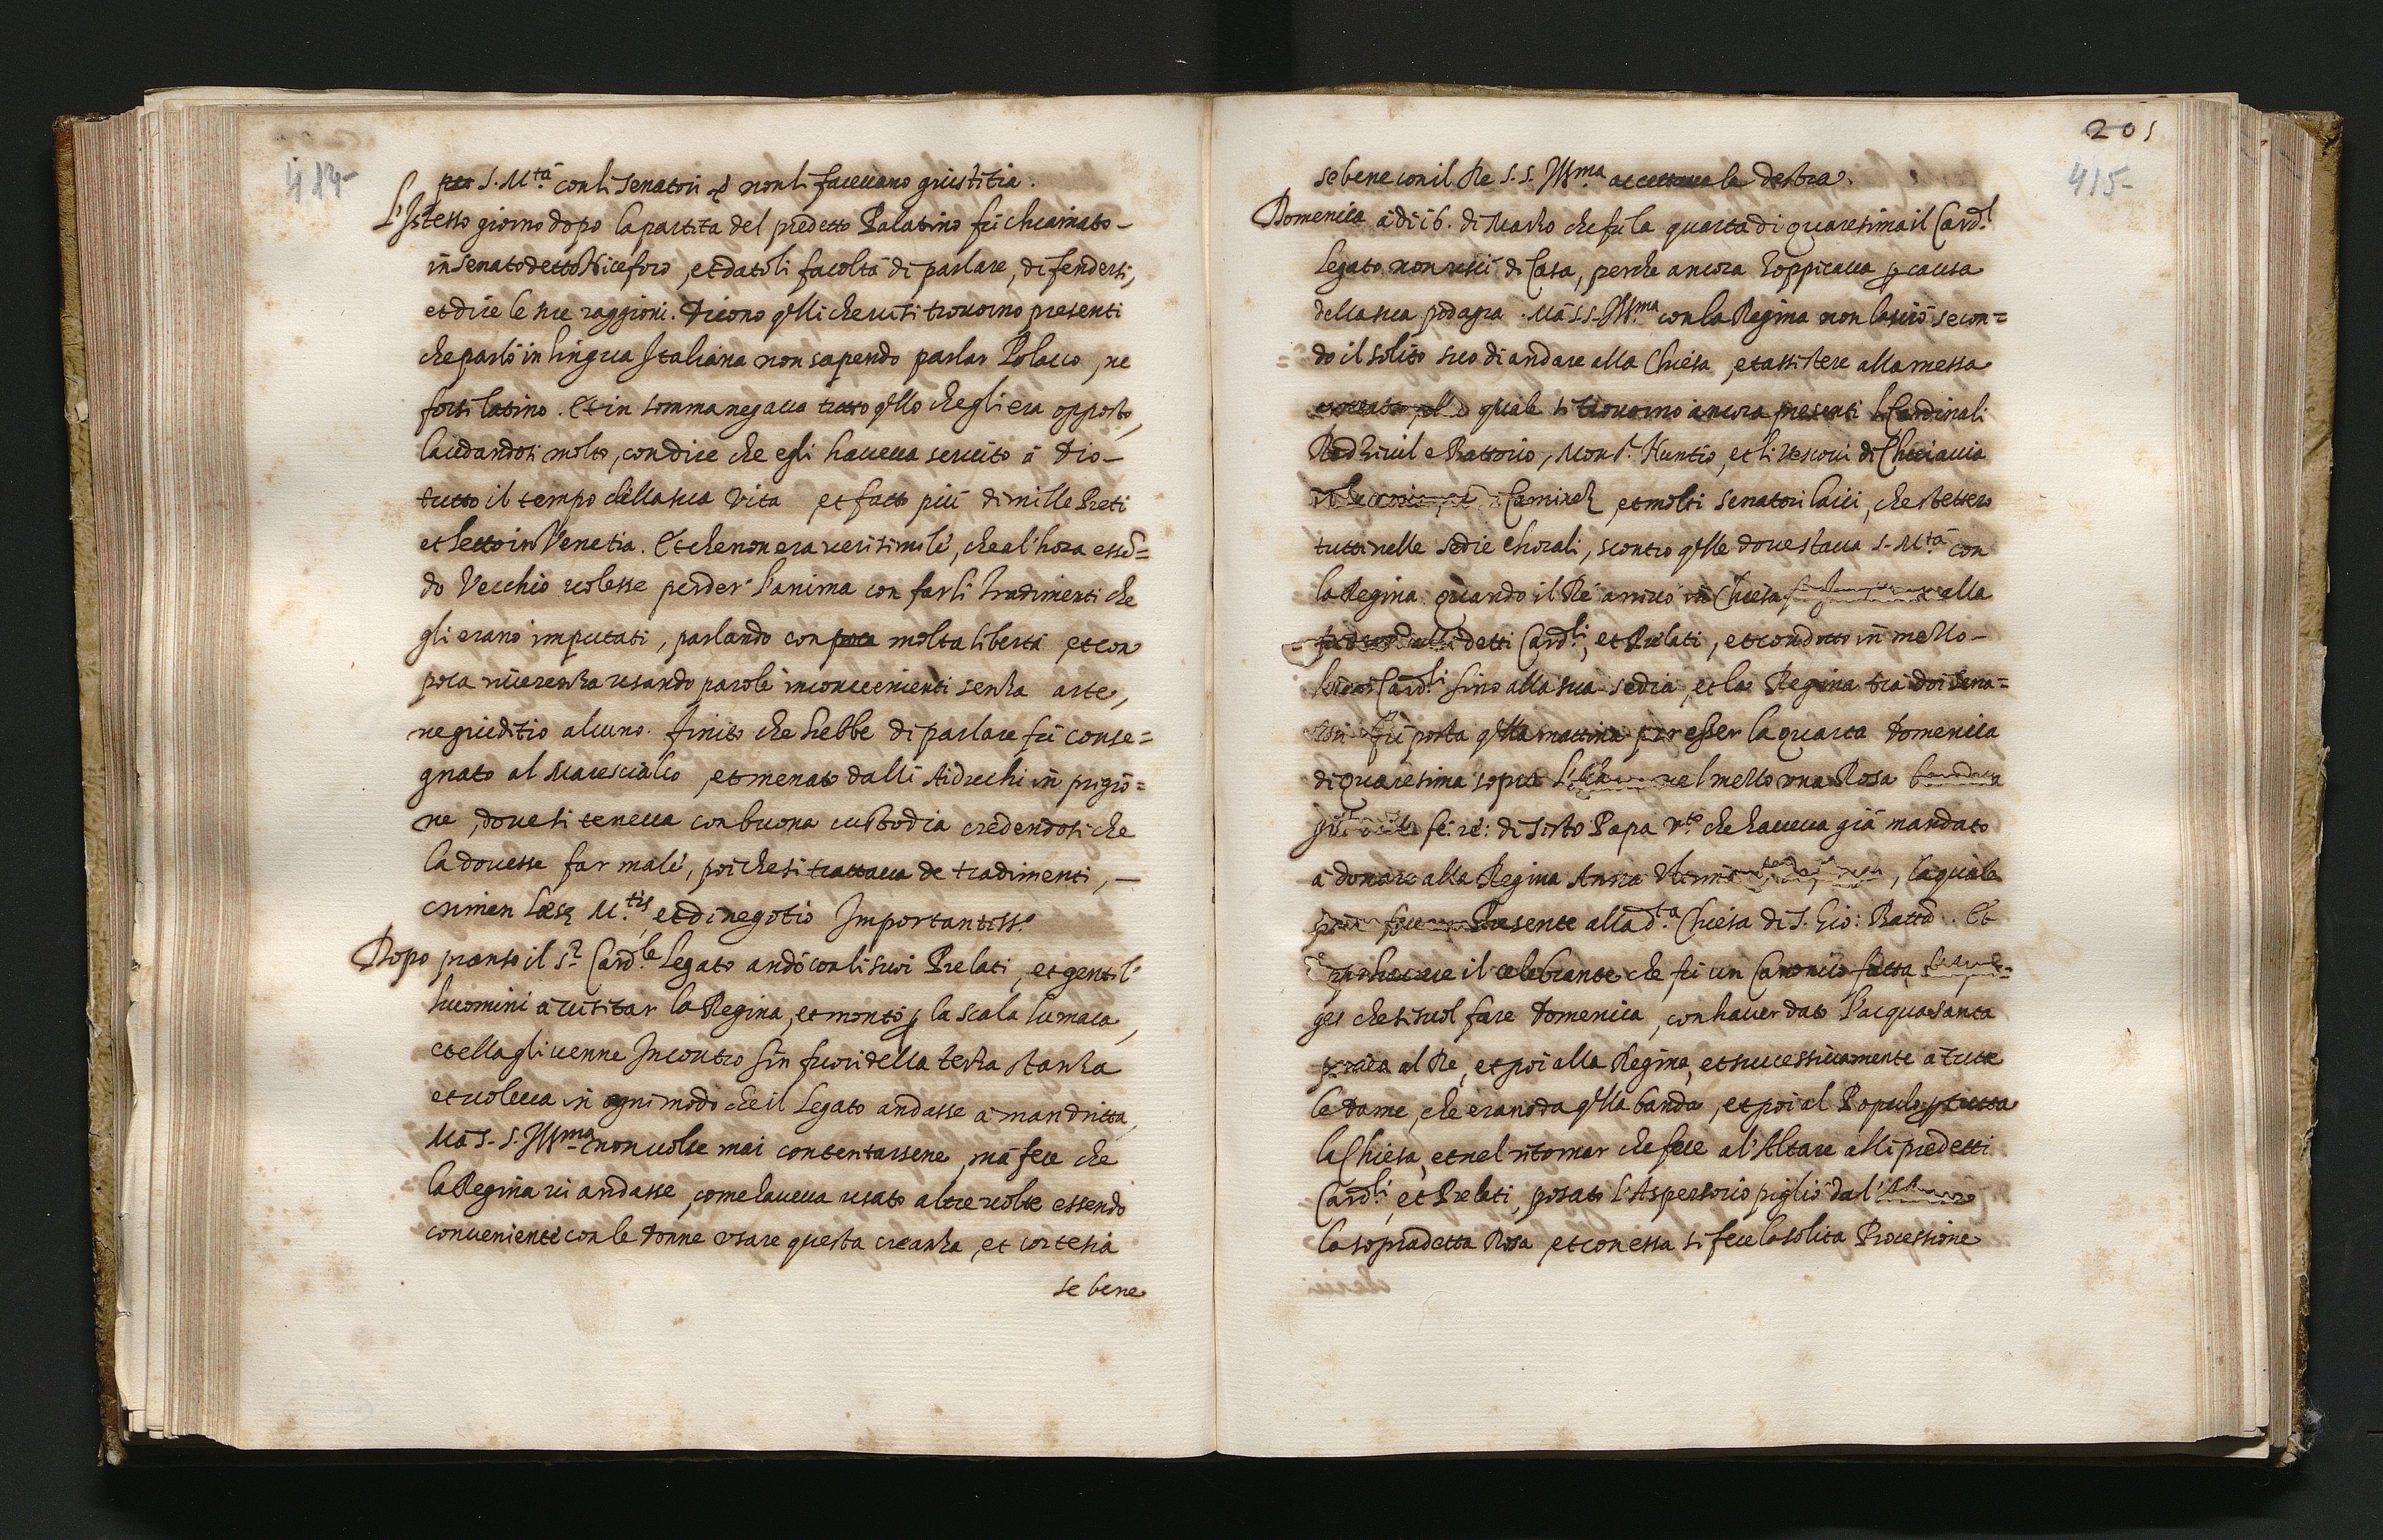 414
S. M.tà con li Senatori non li facevano giustitia.
L'Istesso giorno dopo la partita del predetto Palatino fù chiamato
in Senato detto Niceforo, et datoli facoltà di parlare, difendersi,
et dire le sue raggioni. Dicono q'lli che vi si trovorno presenti
che parlò in lingua Italiana non sapendo parlar Polacco, ne
forsi latino. Et in somma negava tutto q'llo che gli era opposto,
laudandosi molto, con dire che egli haveva servito à Dio
tutto il tempo della sua vita et fatto più di mille Preti
et letto in Venetia. Et che non era verisimile, che al'hora essē=
do Vecchio volesse perder l'anima con far li tradimenti che
gli erano imputati, parlando con poca molta libertà et con
poca riverenza usando parole inconvenienti senza arte,
ne giuditio alcuno. Finito che hebbe di parlare fù conse=
gnato al Marescialco, et menato dalli Aiduchi in prigio=
ne, dove si teneva con buona custodia credendosi che
la dovesse far male, poiche si trattava de tradimenti,
crimen læsę M.tis et di negotio Importantiss.o
Dopo pranso il S.r Card.le Legato andò con li suoi Prelati, et gentil'
huomini à visitar la Regina, et montò p la scala lumaca,
et ella gli venne Incontro fin fuori della terza stanza
et voleva in ogni modo che il Legato andasse à man dritta,
Mà S. S. Ill.ma non volse mai contentarsene, mà fece che
la Regina vi andasse, come haveva usato altre volte essendo
conveniente con le Donne usare questa creanza, et cortesia
se bene
201
415
se bene con il Re S. S. Ill.ma accettava la destra.
Domenica à di 16. di Marzo che fu la quarta di quaresima il Card.l
Legato non uscì di Casa, perche ancora zoppicava p causa
della sua podagra. Mà S. S. Ill.ma con la Regina non lasciò secon=
do il solito suo di andare alla Chiesa, et assistere alla messa
quale si trovorno ancora presenti li Cardinali
Radzivil e Battorio, Mons.r Nuntio, et li Vescovi di Cuiavia
Caminez, et molti Senatori laici, che stettero
tutti nelle sedie chorali, scontro q'lle dove stava S. M.tà con
la Regina quando il Rè arrivò in Chiesa alla
detti Card.li, et Prelati, et condotto in mezzo
Card.li sino alla sua sedia, et la Regina tra doi Sena=
fù posta q'lla mattina per esser la quarta Domenica
di quaresima sopra nel mezzo una Rosa
fe: re: di Sisto Papa V.to che haveva già mandato
à donare alla Regina Anna, la quale
Presente alla d.ta Chiesa di S. Gio: Batta. Et
il celebrante che fù un Canonico
ges che si suol fare Domenica, con haver dato l'acqua santa
prima al Re, et poi alla Regina, et successivamente à tutte
le Dame, che erano da q'lla banda, et poi al Populo p tutta
la Chiesa, et nel ritornar che fece al'Altare alli predetti
Card.li, et Prelati, posato l'Aspersorio pigliò dal'
la sopradetta Rosa et con essa si fece la solita Processione